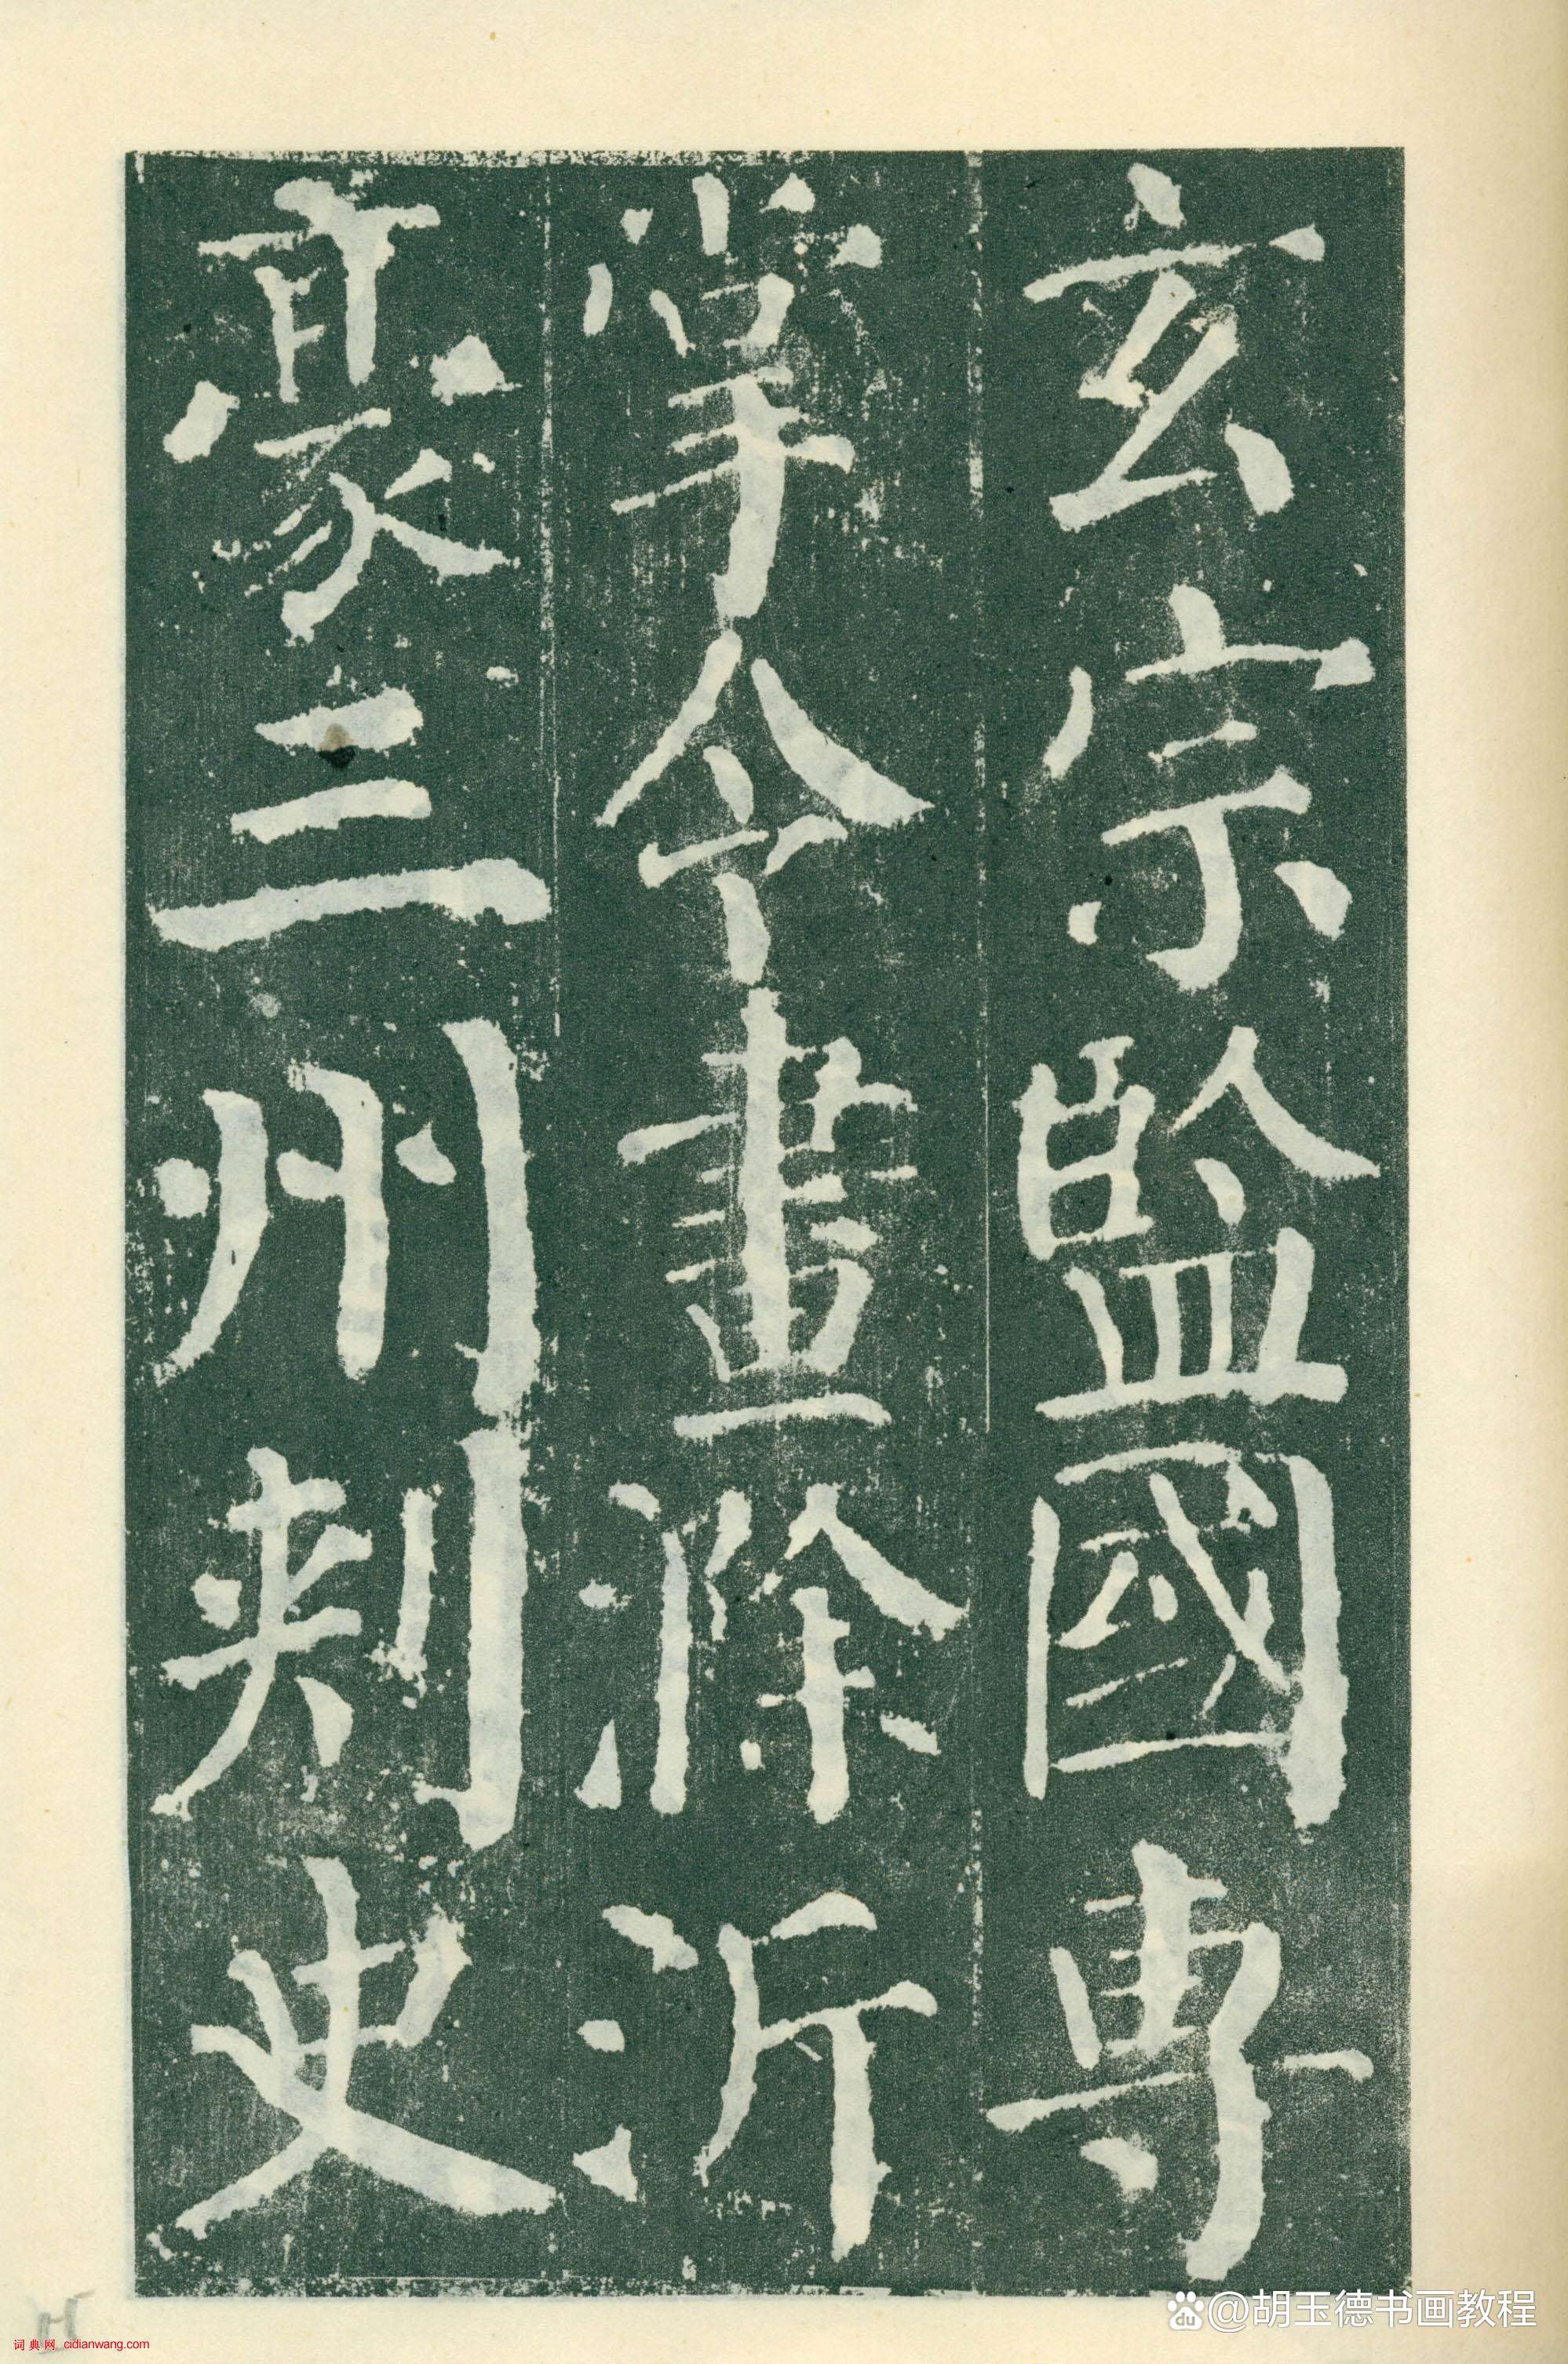 玄宗監國專
掌令畫滁沂
豪三州刺史
@胡玉德书画教程
词典网 cidianwang.com